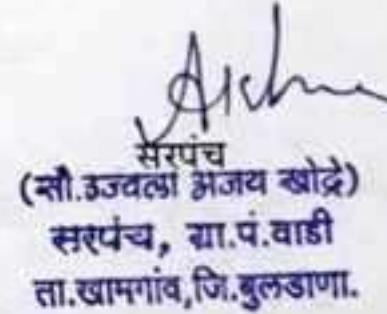 सरपंच
(सौ.उज्वला अजय खोद्रे)
सरपंच, ग्रा.पं.वाडी
ता.खामगांव,जि.बुलडाणा.